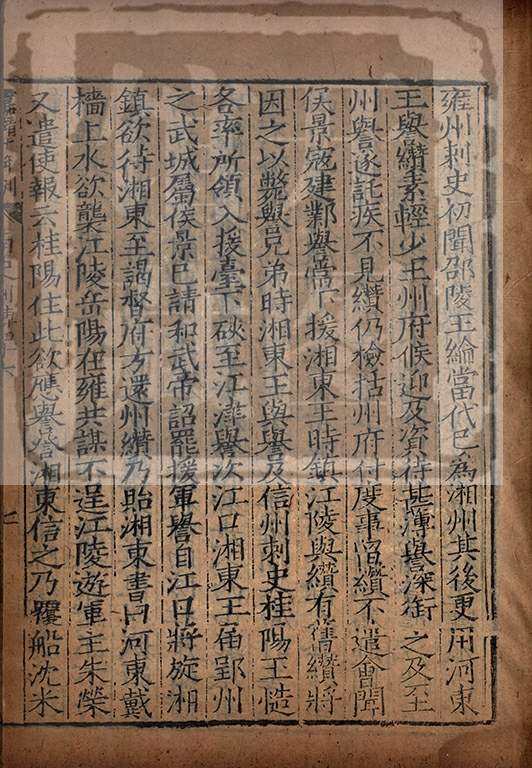 雍州刺史初聞邵陵王綸當代巳爲湘州其後更用河東
王譽纘素輕少王州府候迎及資待甚薄譽深銜之及至
州譽遂託疾不見纘仍檢括州府付度事留纘不遣會聞
侯景寇建鄴譽當下援湘東王時鎮江陵與纘有舊纘將
因之以斃譽兄弟時湘東王與譽及信州刺史桂陽王慥
各率所領入援臺下硤至江津譽次江口湘東王届郢州
之武城屬侯景巳請和武帝詔罷援軍譽自江口將旋湘
鎮欲待湘東至謁督府方還州纘乃貽湘東書曰河東戴
檣上水欲襲江陵岳陽在雍共謀不逞江陵遊軍主朱榮
又遣使報云桂陽住此欲應譽詧湘東信之乃鑿船沈米